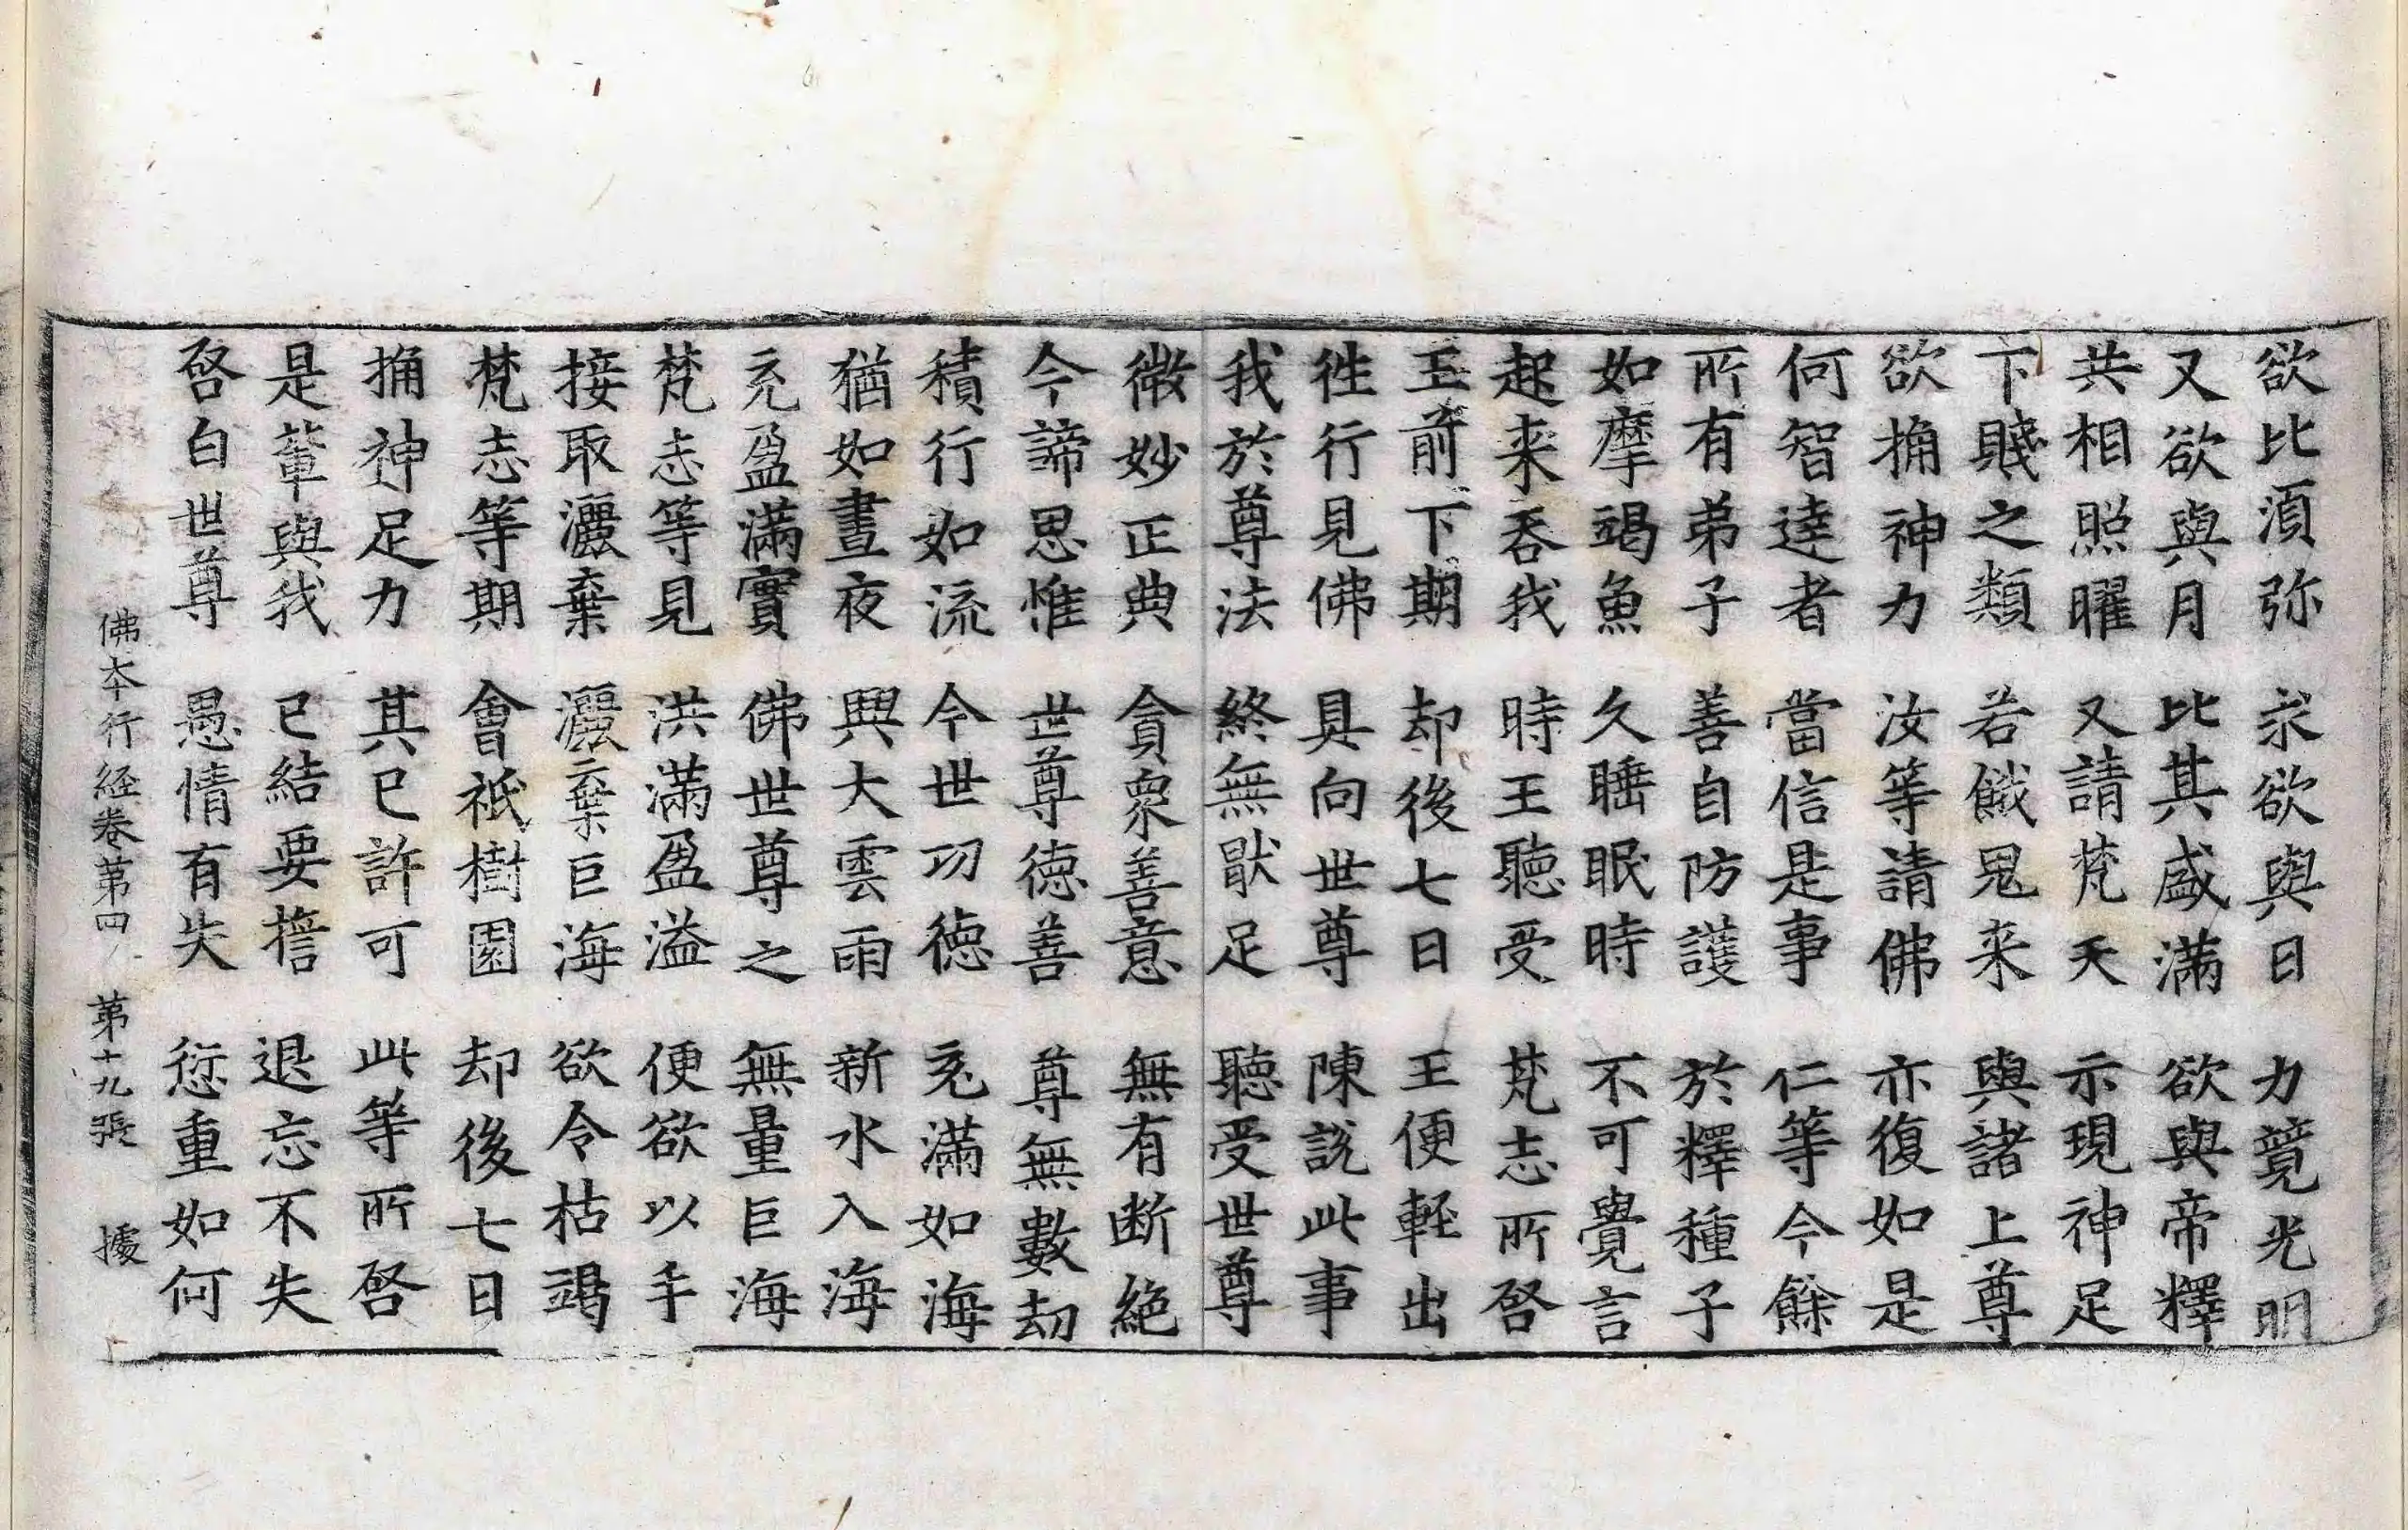 欲比湏弥 求欲與日 力竟光明
又欲與月 比其盛滿 欲與帝釋
共相照曜 又請梵天 示現神足
下賎之類 若餓鬼来 與諸上尊
欲捔神力 汝等請佛 亦復如是
何智達者 當信是事 仁等今餘
所有弟子 善自防護 於釋種子
如摩竭魚 久睡眠時 不可覺言
起来吞我 時王聽受 梵志所啓
王前下期 却後七日 王便軽出
徃行見佛 具向世尊 陳說此事
我於尊法 終無猒足 聽受世尊
微妙正典 貪衆善意 無有断絶
今諦思惟 世尊徳善 尊無數劫
積行如流 今世功徳 充滿如海
猶如晝夜 興大雲雨 新水入海
充盈滿實 佛世尊之 無量巨海
梵志等見 洪滿盈溢 便欲以手
接取灑棄 灑棄巨海 欲令枯竭
梵志等期 會祇樹園 却後七日
捔神足力 其已許可 此等所啓
是輩與我 已結要擔 退忘不失
啓白世尊 愚情有失 愆重如何
佛夲行経卷第四 第十九張 㩀